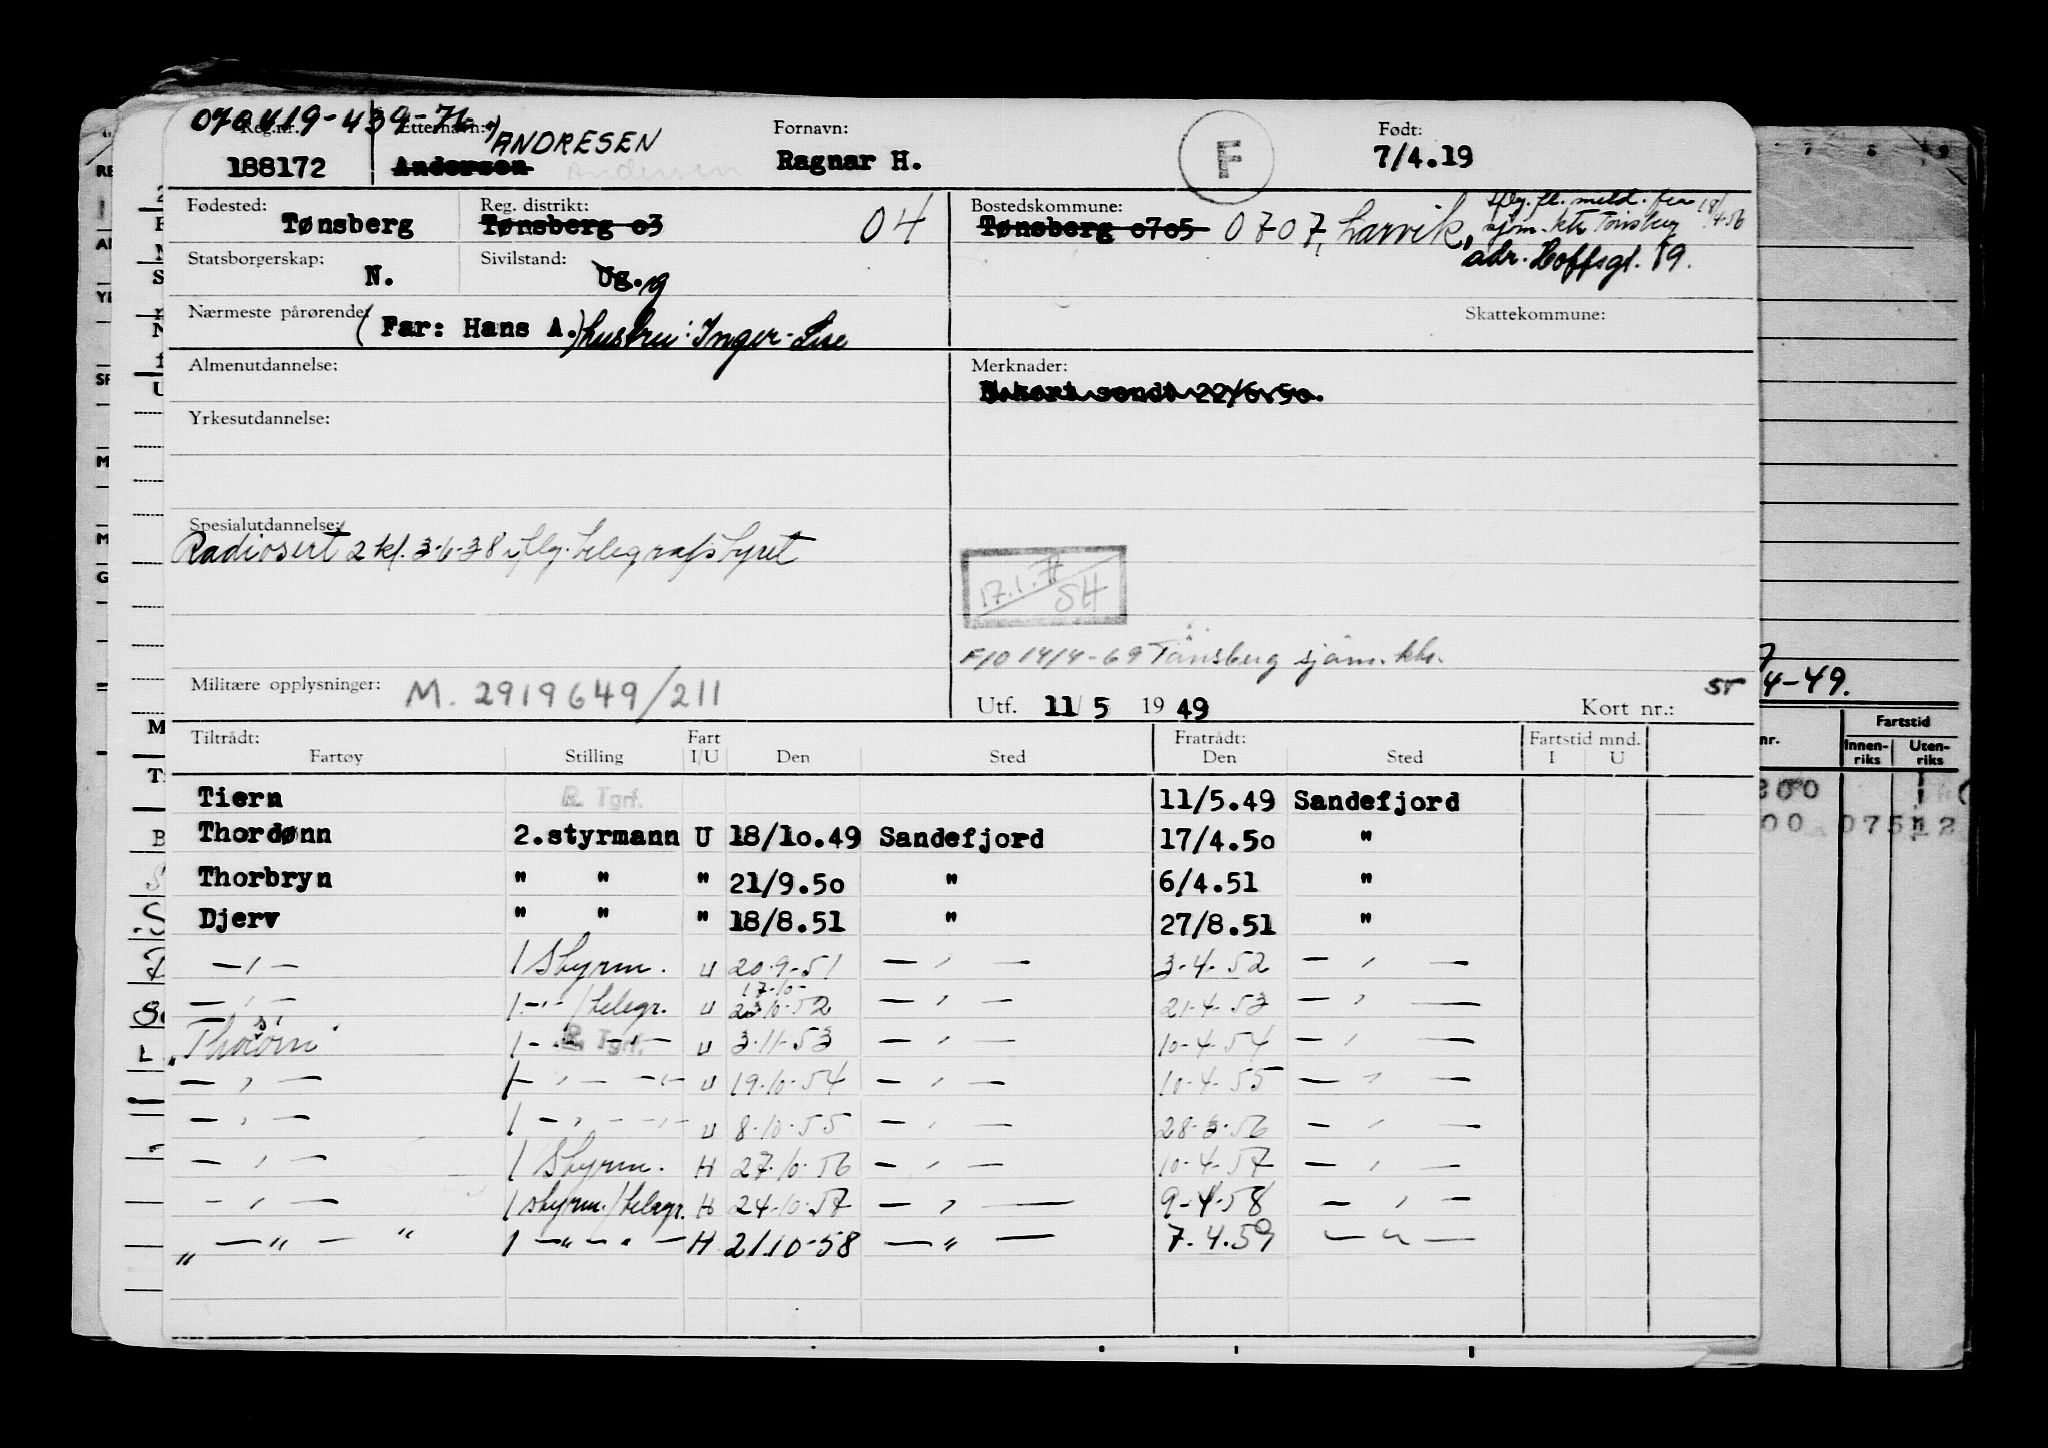 070419-439-76
Reg.nr. Etternavn: Fornavn: Født:
188172 Andersen ANDRESEN Andersen Ragnar H. F 7/4.19
Fødested: Reg. distrikt: Bostedskommune:
Tønsberg Tønsberg o3 04 Tønsberg o7o5 0707, Larvik, iflg. fl. meld. fra sjøm. ktr Tønsberg 18/4-56
Statsborgerskap: Sivilstand: adr. Hoffsgt. 19.
N. Ug. g
Nærmeste pårørende: Skattekommune:
(Far: Hans A.) hustru: Inger-Lise
Almenutdannelse: Merknader:
H.kort sendt 22/6.5o.
Yrkesutdannelse:
Spesialutdannelse:
Radiosert 2 kl. 3-6-38 iflg. telegrafstyret
17.1.
SH
F/O 14/4-69 Tønsberg sjøm. ktr.
Militære opplysninger: M. 2919649/211 Utf. 11/5 1949 Kort nr.:
Tiltrådt: Fart Fratrådt: Fartstid mnd.
Fartøy Stilling I/U Den Sted Den Sted I U
Tiern R. Tgrf. 11/5.49 Sandefjord
Thordønn 2.styrmann U 18/1o.49 Sandefjord 17/4.5o "
Thorbryn " " " 21/9.5o " 6/4.51 "
Djerv " " " 18/8.51 " 27/8.51 "
— " — 1 Styrm. U 20-9-51 — " — 3-4-52 — " —
— " — 1 — " — /telegr. U 17-10- 10-52 — " — 21-4-53 — " —
1 — " — R. Tgrf. — " — U 3-11-53 — " — 10-4-54 — " —
— " — 1 — " — — " — U 19-10-54 — " — 10-4-55 — " —
— " — 1 — " — — " — U 8-10-55 — " — 28-3-56 — " —
— " — 1 Styrm. H 27-10-56 — " — 10-4-57 — " —
— " — 1 styrm./telegr. H 24-10-57 — " — 9-4-58 — " —
" — " — " 1 — " — " — H 21.10-58 — " — 7.4.59 — " —
4-49.
nr. Fartstid
Innen-riks Uten-riks